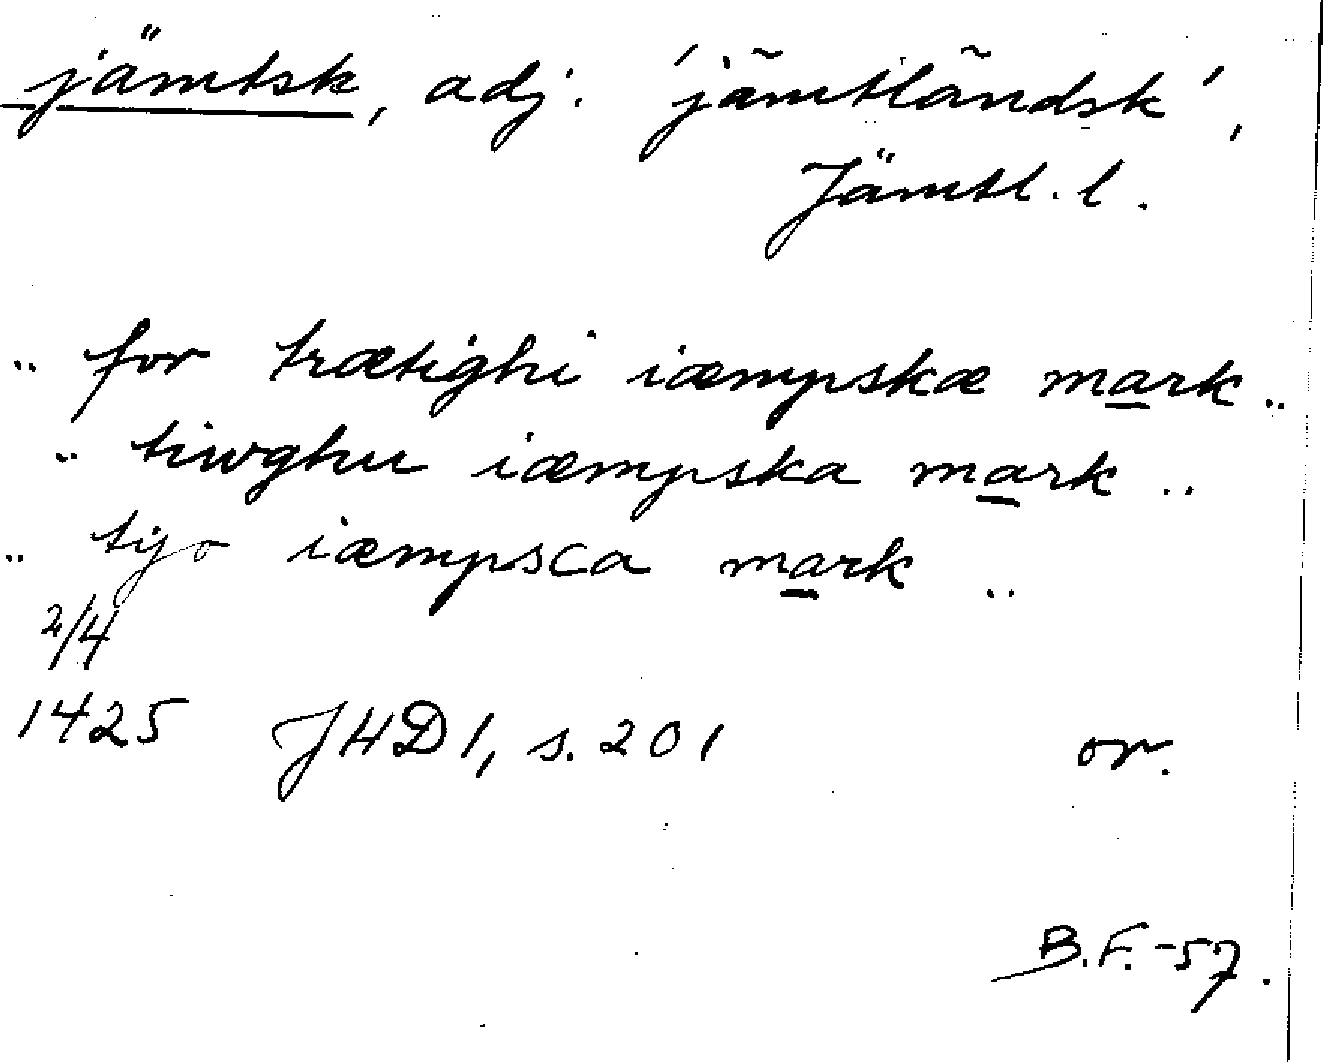 jämtsk, adj. 'jämtländsk',
Jämtl. l.
.. for trætighi iæmpskæ mark ..
.. tiwghu iæmpska mark ..
.. tijo iæmpsca mark ..
2/4
1425 JHD 1, s. 201 or.
B.F. -57.